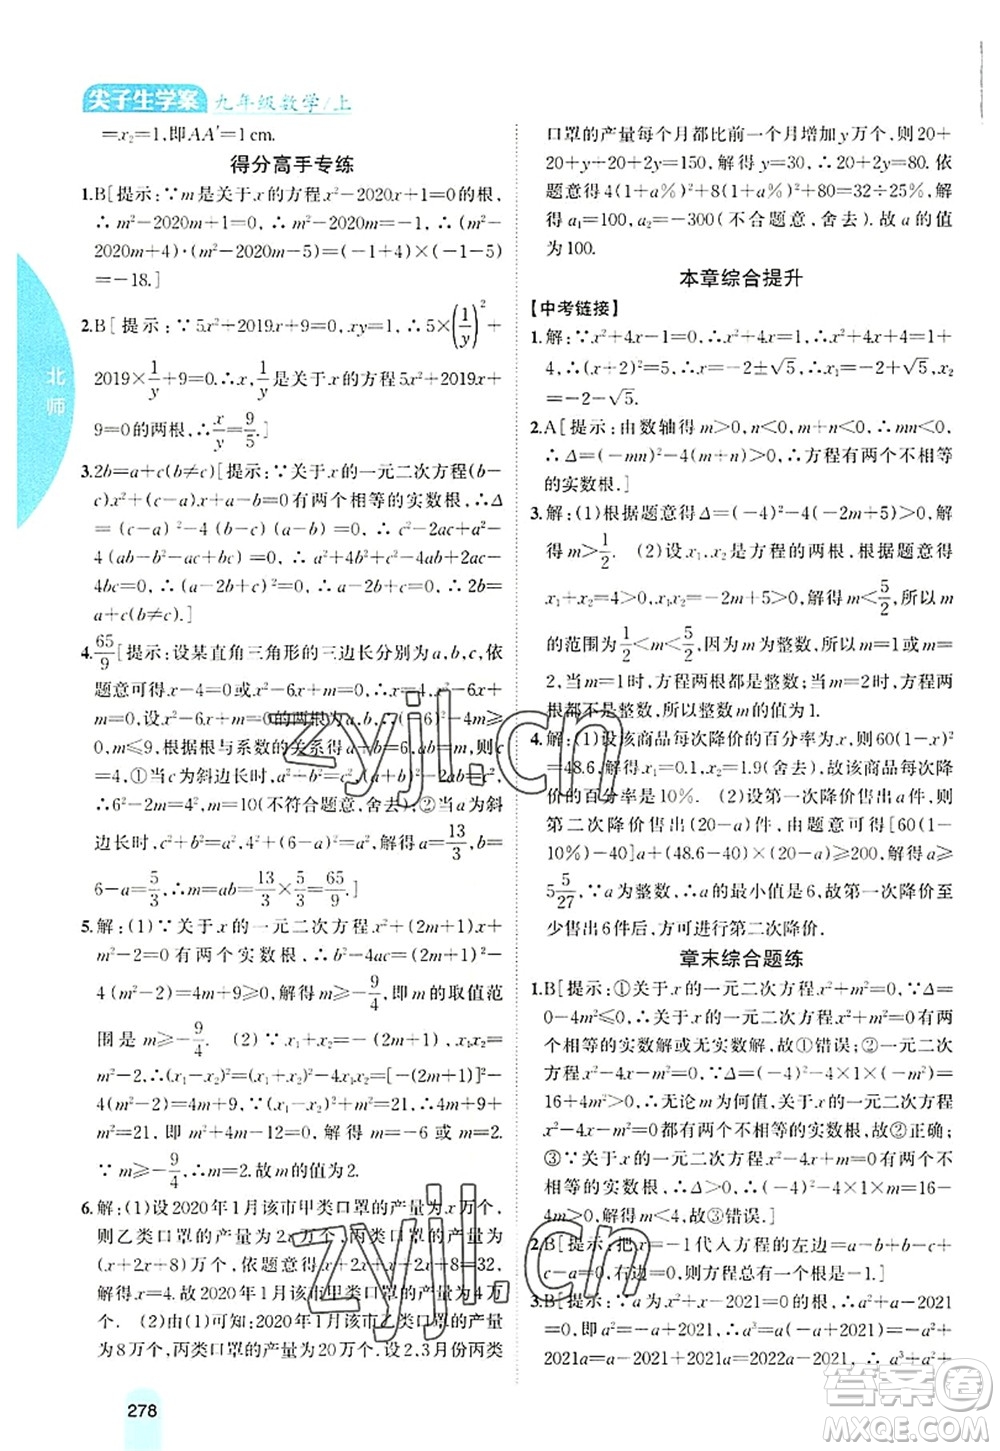 尖子生学案 九年级数学/上
=x₂=1,即AA′=1 cm.
得分高手专练
1.B[提示:∵m是关于x的方程x²-2020x+1=0的根,
∴m²-2020m+1=0,∴m²-2020m=-1,∴(m²-
2020m+4)·(m²-2020m-5)=(-1+4)×(-1-5)
=-18.]
2.B[提示:∵5x²+2019x+9=0,xy=1,∴5×(1/y)²+
2019×1/y+9=0.∴x,1/y是关于x的方程5x²+2019x+
9=0的两根,∴x/y=9/5.]
3.2b=a+c(b≠c)[提示:∵关于x的一元二次方程(b-
c)x²+(a-b)x+c-a=0有两个相等的实数根,∴Δ
4.65/9[提示:设某直角三角形的三边长分别为a,b,c,依
题意可得x-4=0或x²-6x+m=0,∴x=4,x²-6x+m
=0,设x²-6x+m=0的两根为a,b,∴(-6)²-4m>0,
m≤9,根据根与系数的关系得a+b=6,ab=m,则c
=4,①当c为斜边长时,c²=a²+b²=(a+b)²-2ab,
∴6²-2m=4²,m=10(不符合题意,舍去);②当a为斜
边长时,c²+b²=a²,4²+(6-a)²=a²,a=13/3,b=
6-a=5/3,∴m=ab=13/3×5/3=65/9.]
5.解:(1)∵关于x的一元二次方程x²+(2m+1)x+
m²-2=0有两个实数根,∴Δ=(2m+1)²-4×1×
(m²-2)=4m+9≥0,解得m≥-9/4,即m的取值范
围是m≥-9/4.
6.解:(1)设2020年1月该市甲类口罩的产量为x万个,
则乙类口罩的产量为2x万个,丙类口罩的产量为
(x+2x+8)万个,依题意得x+2x+(x+2x+8)=32,
解得x=4.故2020年1月该市甲类口罩的产量为4万
个. (2)由(1)可知,2020年1月该市乙类口罩的产量
为8万个,丙类口罩的产量为20万个.设2,3月份丙类
口罩的产量每个月都比前一个月增加y万个,则20+
20+y+20+2y=150,解得y=30,∴20+2y=80.依
题意可得4(1+a%)²+8(1+a%)²=32÷25%,解
得a₁=100,a₂=-300(不合题意,舍去).故a的值
为100.
本章综合提升
【中考链接】
1.解:∵x²+4x-1=0,∴x²+4x=1,∴x²+4x+4=1+
4,∴(x+2)²=5,∴x=-2±√5,∴x₁=-2+√5,x₂
=-2-√5.
2.A[提示:由数轴得m>0,n<0,m+n<0,∴mn<0,
∴Δ=(mn)²-4(m+n)>0,∴方程有两个不相等
的实数根.]
3.解:(1)根据题意得Δ=(-4)²-4(-2m+5)>0,
解得m>1/2. (2)设x₁,x₂是方程的两根,根据题意得
x₁+x₂=4>0,x₁x₂=-2m+5>0,解得m<5/2,所以m
的范围为1/2<m<5/2.因为m为整数,所以m=1或m=
2,当m=1时,方程两根都是整数;当m=2时,方程两根
都不是整数.所以整数m的值为1.
4.解:(1)设该商品每次降价的百分率为x,则60(1-x)²
=48.6,解得x₁=0.1,x₂=1.9(舍去),故该商品每次降
价的百分率是10%. (2)设第一次降价售出a件,则
第二次降价售出(20-a)件,由题意可得[60(1-
10%)-40]a+(48.6-40)×(20-a)≥200,解得a≥
5 5/27,∵a为整数,∴a的最小值是6,故第一次降价至
少售出6件后,方可进行第二次降价.
章末综合题练
1.B[提示:①关于x的一元二次方程x²+m²=0,∵Δ=
0-4m²≤0,∴关于x的一元二次方程x²+m²=0有两
个相等的实数解或无实数解,故①错误;②一元二次方
程x²-4x-m²=0,∵Δ=(-4)²-4×1×(-m²)=
16+4m²>0,∴无论m为何值,关于x的一元二次方程
x²-4x-m²=0都有两个不相等的实数根,故②正确;
③∵关于x的一元二次方程x²-4x+m=0有两个不
相等的实数根,∴Δ=(-4)²-4×1×m=16-4m>
0,解得m<4,故③错误.]
2.B[提示:把x=-1代入方程的左边=a-b+c=
a+c-b=0,右边=0,方程总有一个根为-1.]
3.B[提示:∵a为x²+x-2021=0的根,∴a²+a-2021
北师
278
zyjl.cn
zyjl.cn
答案圈